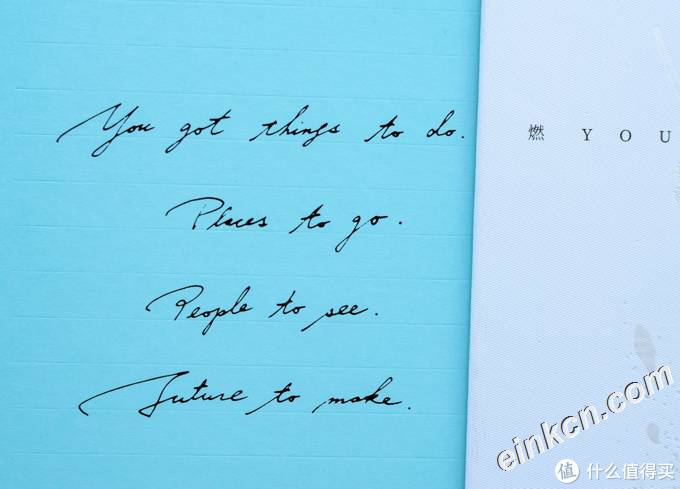 You got things to do.
Places to go.
People to see.
Future to make.
燃 YOU
einkcn.com
值 什么值得买